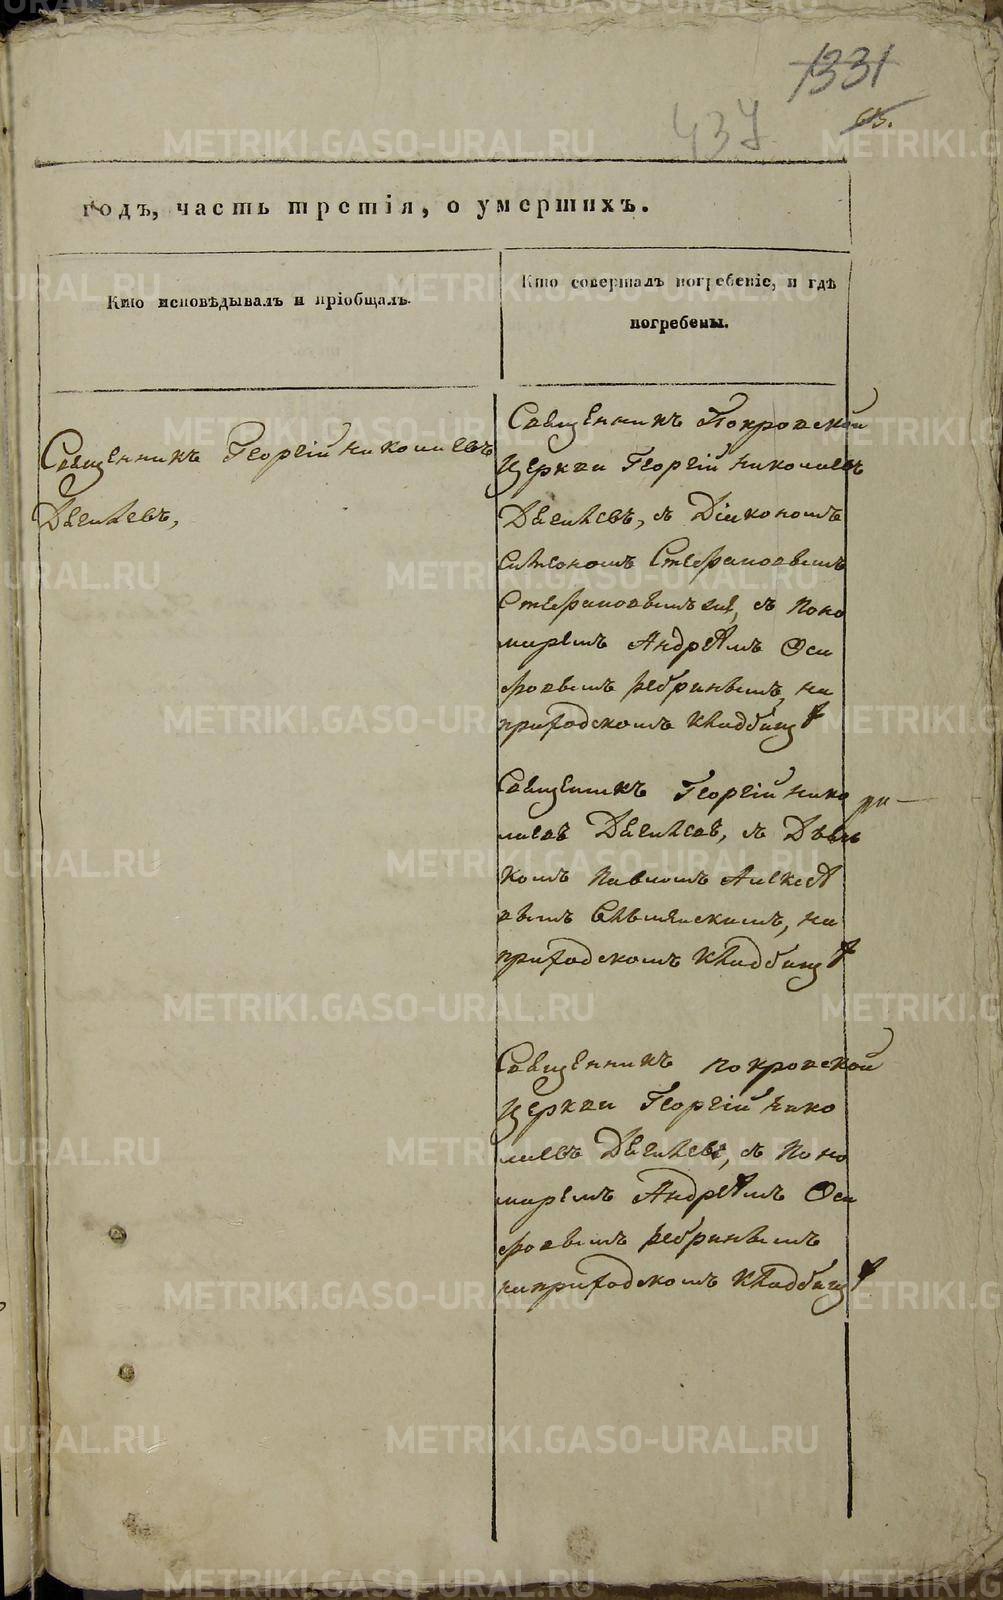 1331
437
годъ, часть третія, о умершихъ.
Кто исповѣдывалъ и пріобщалъ.
Кто совершалъ погребеніе, и гдѣ
погребены.
Священникъ Георгій Николаевъ
Священникъ Покровской
церкви Георгій Николаевъ
съ Діакономъ
Симеономъ Стефановымъ
съ Поно
маремъ Андреемъ Оси
повымъ Ребринымъ, на
приходскомъ кладбищѣ
Священникъ Георгій Нико
лаевъ съ
комъ Павломъ Алексѣ
вымъ на
приходскомъ кладбищѣ
Священникъ Покровской
церкви Георгій Нико
лаевъ съ Поно
маремъ Андреемъ Оси
повымъ Ребринымъ
на приходскомъ кладбищѣ
METRIKI.GASO-URAL.RU